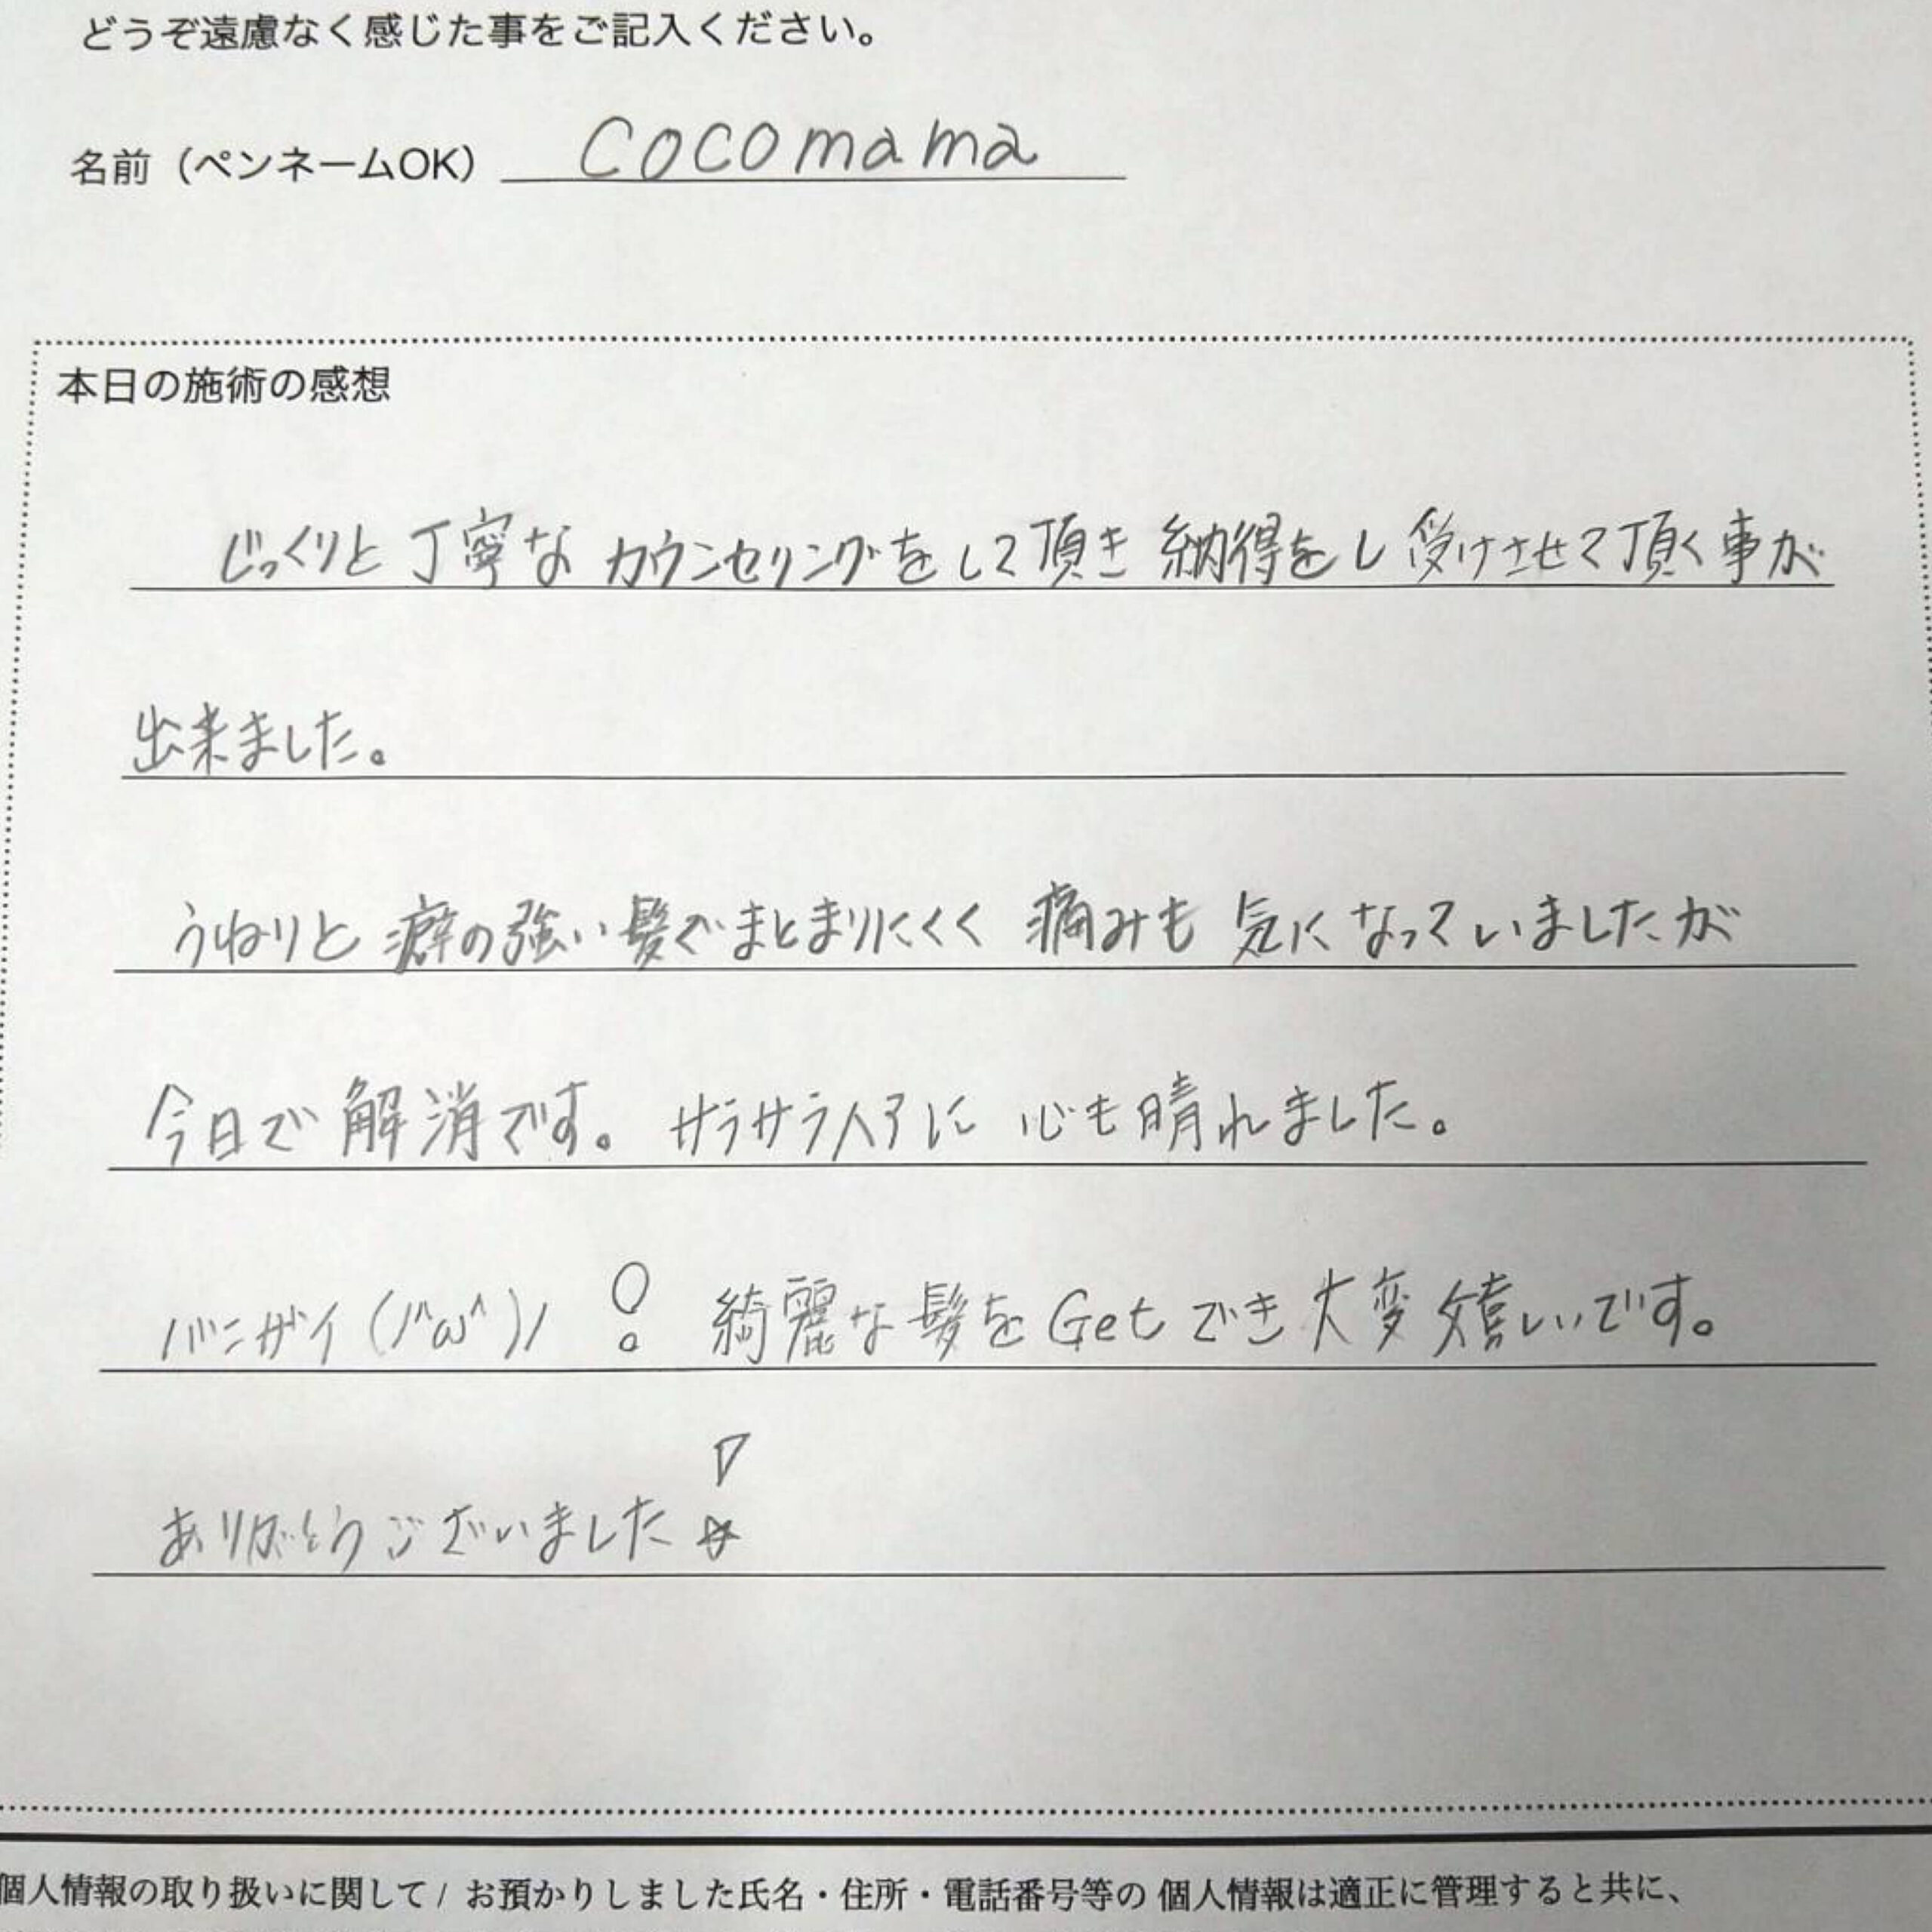 どうぞ遠慮なく感じた事をご記入ください。
名前（ペンネームOK） cocomama
本日の施術の感想
じっくりと丁寧なカウンセリングをして頂き 納得をし 受けさせて頂く事が
出来ました。
うねりと癖の強い髪でまとまりにくく 痛みも 気になっていましたが
今日で解消です。サラサラヘアに 心も晴れました。
バンザイ(/^ω^)/ ! 綺麗な髪をGetでき大変嬉しいです。
ありがとうございました☆
個人情報の取り扱いに関して / お預かりしました氏名・住所・電話番号等の 個人情報は適正に管理すると共に、